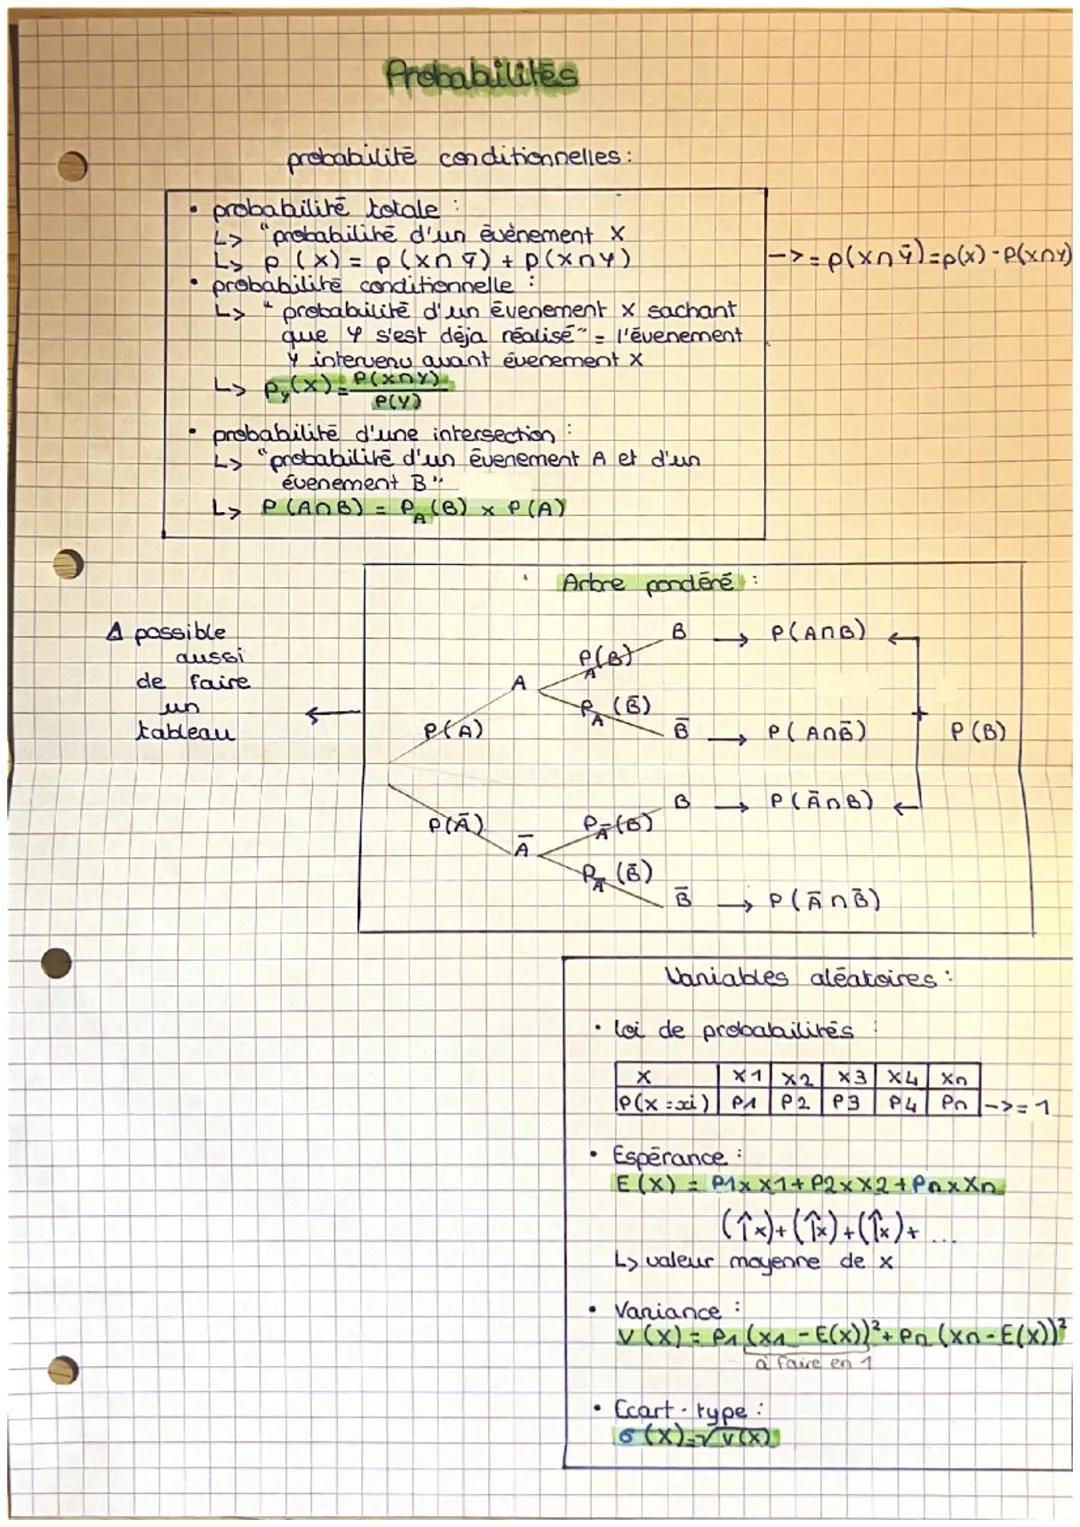 Probabilités
probabilité conditionnelles :
• probabilité totale :
↳ "probabilité d'un évènement X
↳ p (X) = p (X∩Ȳ) + p(X∩Y)
-> = p(X∩Ȳ)=p(x)-P(X∩Y)
• probabilité conditionnelle :
↳ " probabilité d'un évenement X sachant
que Y s'est déja réalisé" = l'évenement
Y intervenu avant évenement X
↳ P_Y(X) = P(X∩Y)
P(Y)
• probabilité d'une intersection :
↳ "probabilité d'un évenement A et d'un
évenement B"
↳ P(A∩B) = P_A(B) x P(A)
Arbre pondéré :
Δ possible
aussi
de faire
un
tableau
B → P(A∩B)
P_A(B)
A
P_A(B̄)
P(A)
B̄ → P(A∩B̄)
+ P(B)
B → P(Ā∩B)
P(Ā)
P_Ā(B)
Ā
P_Ā(B̄)
B̄ → P(Ā∩B̄)
Variables aléatoires :
• loi de probabilités :
X X1 X2 X3 X4 Xn
P(X=xi) P1 P2 P3 P4 Pn -> = 1
• Espérance :
E(X) = P1xX1+P2xX2+PnxXn
(↑x)+(↑x)+(↑x)+ ...
↳ valeur moyenne de x
• Variance :
V(X) = P1(X1-E(X))²+Pn(Xn-E(X))²
à faire en 1
• Ecart-type :
σ(X)=√V(X)